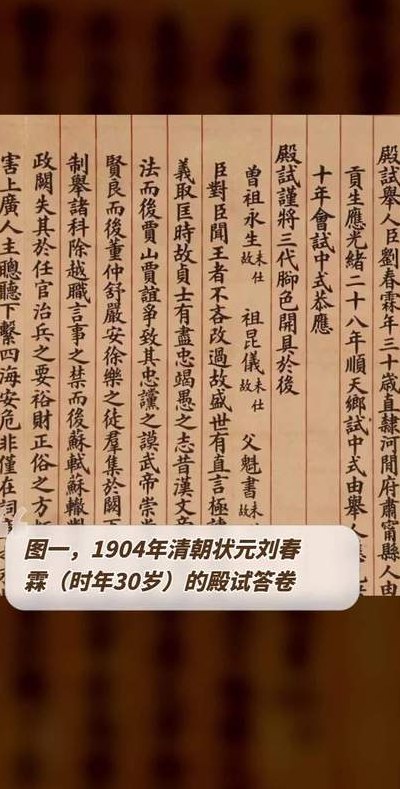 殿試舉人臣劉春霖年三十歲直隸河間府肅寧縣人由
貢生應光緒二十八年順天鄉試中式由舉人
十年會試中式恭應
殿試謹將三代腳色開具於後
曾祖永生未仕故 祖昆儀未仕故 父魁書未
臣對臣聞王者不吝改過故盛世有直言極諫
義取匡時故貞士有盡忠竭愚之志昔漢文帝
法而後賈山賈誼爭致其忠讜之謨武帝崇
賢良而後董仲舒嚴安徐樂之徒羣集於闕下
制舉諸科除越職言事之禁而後蘇軾蘇轍
政闕失其於任官治兵之要裕財正俗之方
害上廣人主聰聽下繫四海安危非僅在詞
图一，1904年清朝状元刘春
霖（时年30岁）的殿试答卷